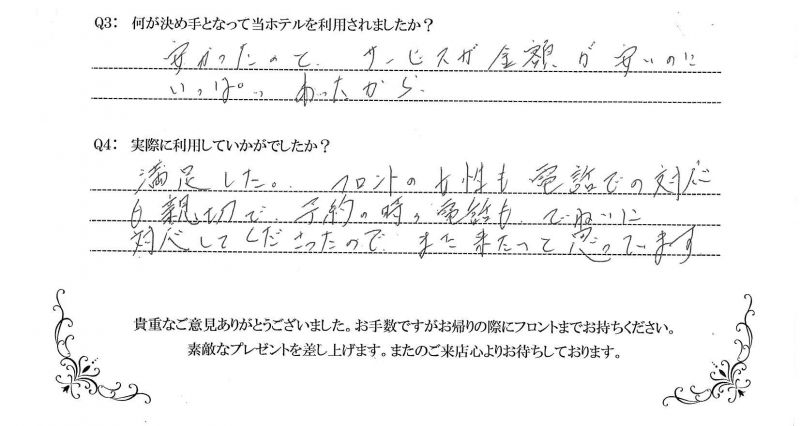 Q3: 何が決め手となって当ホテルを利用されましたか?
安かったのと、サービスが金額が安いのに
いっぱいあったから。
Q4: 実際に利用していかがでしたか?
満足した。フロントの女性も電話での対応
も親切で、予約の時の電話も、ていねいに
対応してくださったので、また来たいって思っています
貴重なご意見ありがとうございました。お手数ですがお帰りの際にフロントまでお持ちください。
素敵なプレゼントを差し上げます。またのご来店心よりお待ちしております。